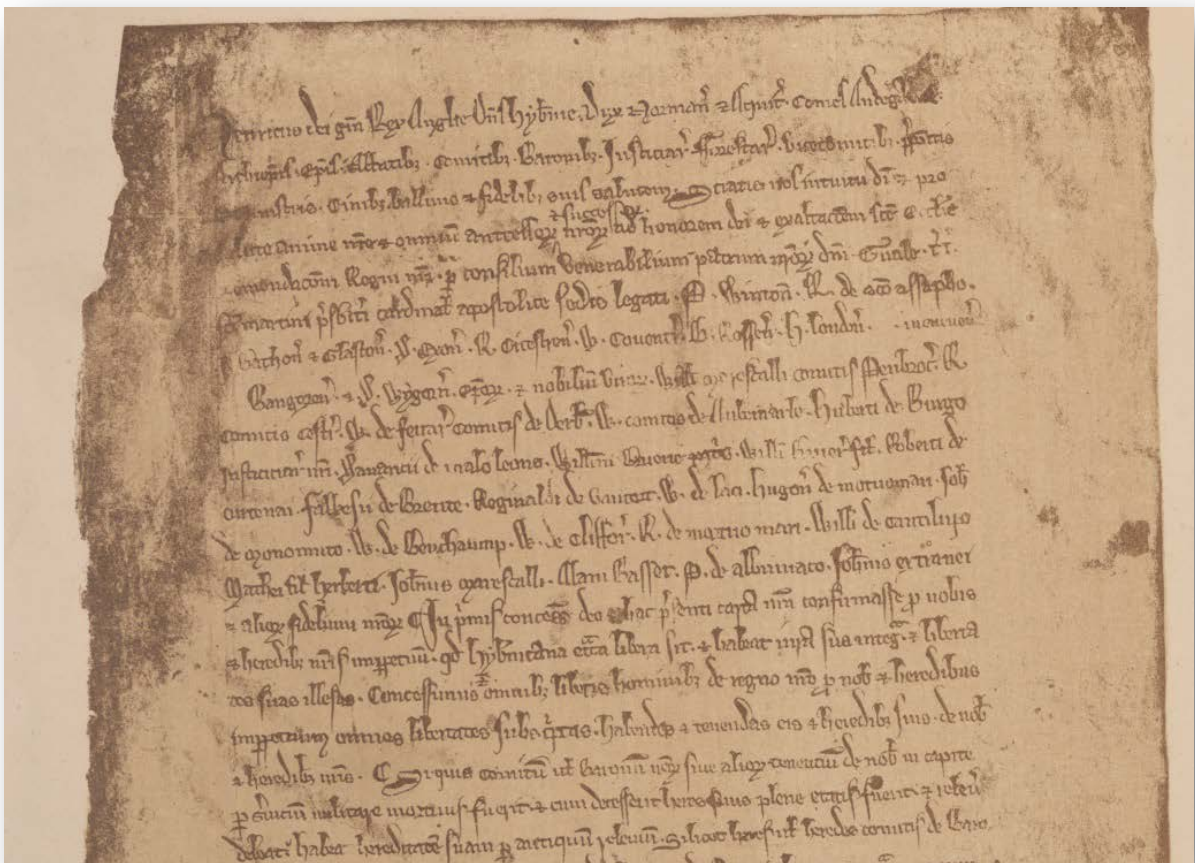 Henricus dei grã Rex Anglie Dñs Hyƀnie. Dux Norman̄ & Aquit̄. Comes Andeg̃
Archiepis. Ep̃is. Abbatibȝ. Comitibȝ. Baronibȝ. Justiciar̃. fforestar̃. vicecomitibȝ. p̃positis
ministris. Oĩnibȝ ballivis & fidelibȝ suis salutem. Sciatis nos intuitu dī & pro
salute anime nr̃e & omniũ antecessoꝝ & successoꝝ nr̃oꝝ ad honorem dei & exaltacõm sc̃e ecc̃lie
& emendacõm Regni nr̃i. p̱ consilium venerabilium patrum nr̃oꝝ dñi. Gwale. t̃t̃.
sc̃i martini p̃sbit̃i cardinal̃ apostolice sedis legati. P. Winton̄. R. de sc̃o assapho.
J Bathon̄ & Glaston̄. S. Exon̄. R. Cicestren̄. W. Coventr̃. B. Roffen̄. H. londen̄.
Bangoren̄. & S. Wygorn̄. ep̃oꝝ. & nobiliũ viroꝝ. Willi marescalli comitis Penbroc̃. R
comitis cestr̃. W. de ferrar̃ comitis de derb̃. W. comitis de Aubemarle. Huberti de Burgo
Justiciar̃ nr̃i. Savarici de malo leone. Willmi Briwerie pat̃s. Willi briwer̃ fil̃. Roberti de
curtenai. falkesii de Breute. Reginaldi de vautort. W. de laci. hugon̄ de mortuomari. Joh̃
de monomuto. W. de Beuchaump. W. de Cliffor̃. R. de mortuo mari. Willi de cantilupo
Mathei fil̃ herberti. Joh̃nis marescalli. Alani Basset. P. de albiniaco. Joh̃nis extranei
& alioꝝ fidelium nr̃oꝝ ¶ In p̃mis concess̃ deo & hac p̃senti carta nr̃a confirmasse ꝓ nobis
& heredibȝ nr̃is imp̱petuũ. qd̃ hyƀnicana ecc̃a libera sit. & habeat iura sua integ̃ & liberta
tes suas illesas. Concessimus & oĩnibȝ liberis hominibȝ de regno nr̃o ꝓ nob̃ & heredibus
imp̱petuum omnes libertates subsc̃ptas. habendas & tenendas eis & heredibȝ suis. de nob̃
& heredibȝ nr̃is. ¶ Si quis comitũ ul̃ Baronũ nr̃oꝝ sive alioꝝ tenentiũ de nob̃ in capite
p̱ s̃viciũ militare mortuus fuerit. & cum decesserit heres suus plene etatis fuerit & releṽ
debeat̃ habeat hereditatẽ suam p̱ antiquũ releviũ. Silicet heres ul̃ heredes comitis de Baro